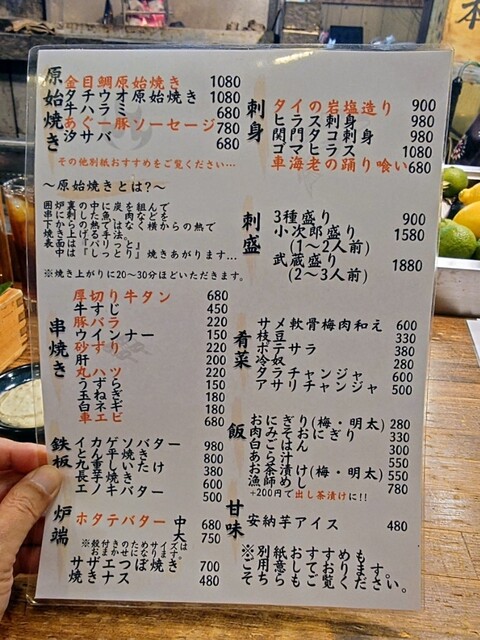 原始焼き
金目鯛原始焼き 1080
タチウオ原始焼き 1080
牛ハラミ 680
あぐー豚ソーセージ 780
汐サバ 680
その他別紙おすすめをご覧ください…
～原始焼きとは?～
囲炉裏の中に炭を組んで
串に刺した魚、肉などを
下からの熱ではなく横からの熱で
焼き上げる手法。
表面は『パリっと』
中は『しっとり』焼きあがります…
※焼き上がりに20～30分ほどいただきます。
串焼き
厚切り牛タン 680
牛すじ 450
豚バラ 220
ウインナー 220
砂ずり 220
肝 200
丸ハツ 220
うずら 150
玉ねぎ 150
白ネギ 180
車エビ 680
鉄板
イカゲソバター 980
とん平焼き 800
九重しいたけ 380
長芋焼き 600
エノキバター 500
炉端
ホタテバター 中 680
大 750
※殻付きのためサイズは
おまかせになります。
サザエつぼ焼き 700
焼きナス 480
刺身
タイの岩塩造り 900
ヒラス刺身 980
関門タコ刺身 980
ゴマヒラス 1080
車海老の踊り喰い 680
刺盛
3種盛り 900
小次郎盛り 1580
(1～2人前)
武蔵盛り 1880
(2～3人前)
肴菜
サメ軟骨梅肉和え 600
枝豆 330
ポテサラ 380
冷奴 280
タラチャンジャ 600
アサリチャンジャ 500
飯
おにぎり(梅・明太) 280
肉みそおにぎり 330
白ごはん 300
あら汁 550
お茶漬け(梅・明太) 550
漁師めし 780
+200円で出し茶漬けに!!
甘味
安納芋アイス 480
※別紙おすすめも
ご用意しております。
そちらもご覧ください。